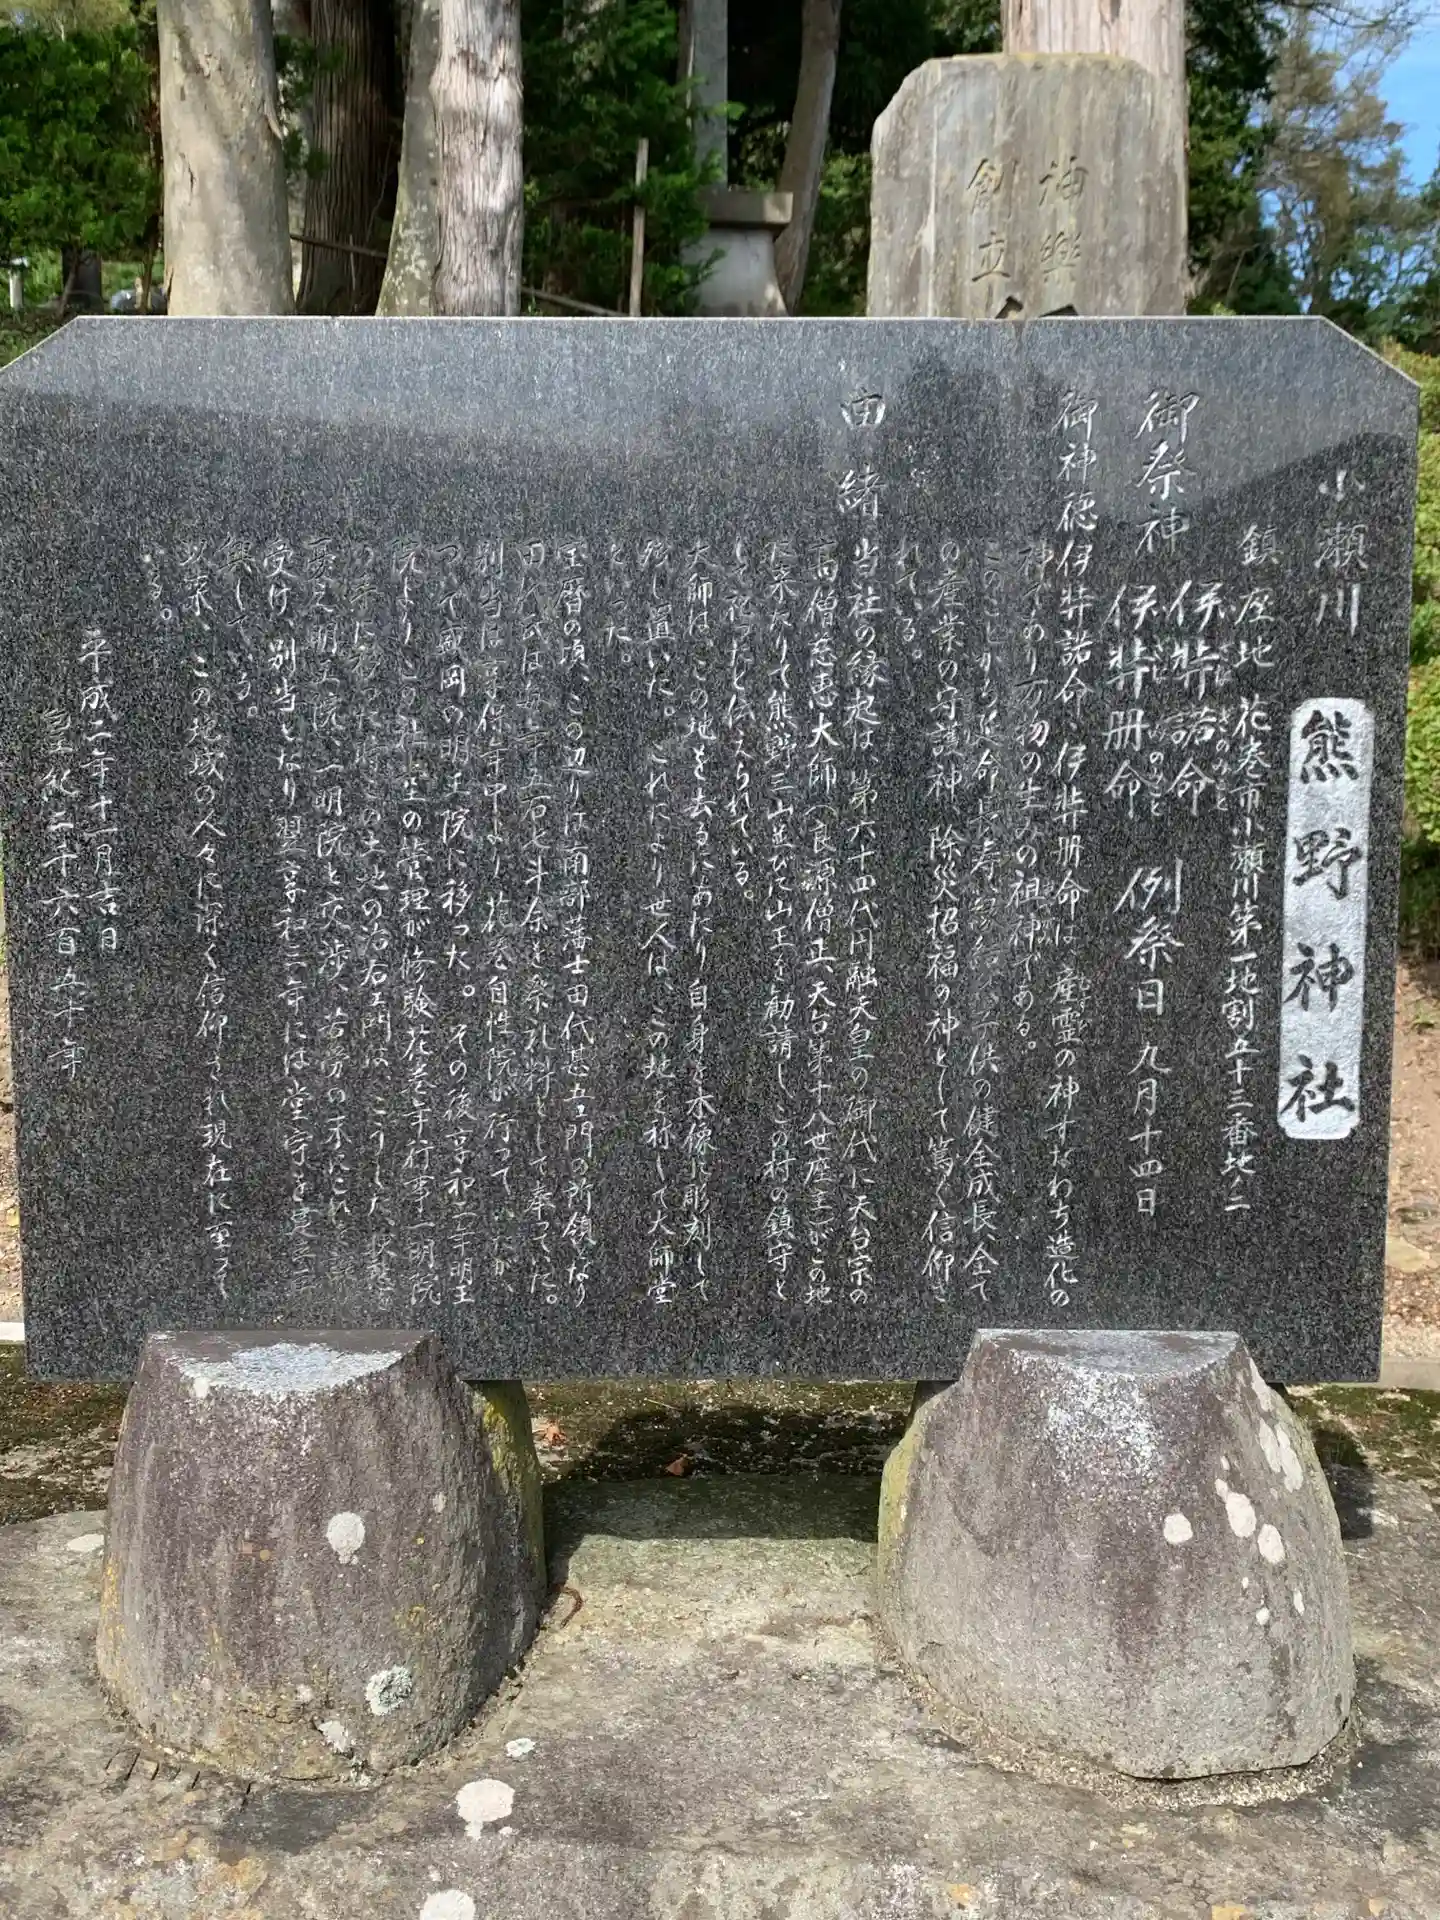 神樂
創立
小瀬川 熊野神社
鎮座地 花巻市小瀬川第一地割五十三番地ノ二
御祭神 伊弉諾命
伊弉册命 例祭日 九月十四日
いざなぎのみこと
いざなみのみこと
御神徳 伊弉諾命、伊弉册命は産霊の神すなわち造化の
神であり万物の生みの祖神である。
このことから延命長寿、縁結び、子供の健全成長、全て
の産業の守護神、除災招福の神として篤く信仰さ
れている。
由緒 当社の縁起は、第六十四代円融天皇の御代に天台宗の
高僧慈恵大師（良源僧正、天台第十八世座主）がこの地
に来たりて熊野三山並びに山王を勧請しこの村の鎮守と
して祀ったと伝えられている。
大師は、この地を去るにあたり自身を木像に彫刻して
残し置いた。これにより世人は、この地を称して大師堂
といった。
宝暦の頃、この辺りは南部藩士田代甚五エ門の所領となり
田代氏は毎年五石七斗余を祭礼料として奉っていた。
別当は享保年中より花巻自性院が行って、たが、
ついで盛岡の明王院に移った。その後享和二年明王
院よりこの社一堂の管理が修験花巻年行事一明院
の手に移った時この土地の治右エ門は、こうした状態を
憂え明王院、一明院と交渉、苦労の末にこれを譲
受け、別当となり翌享和三年には堂宇を建立再
興している。
以来、この地域の人々に深く信仰され現在に至って
いる。
平成二年十一月吉日
皇紀二千六百五十年